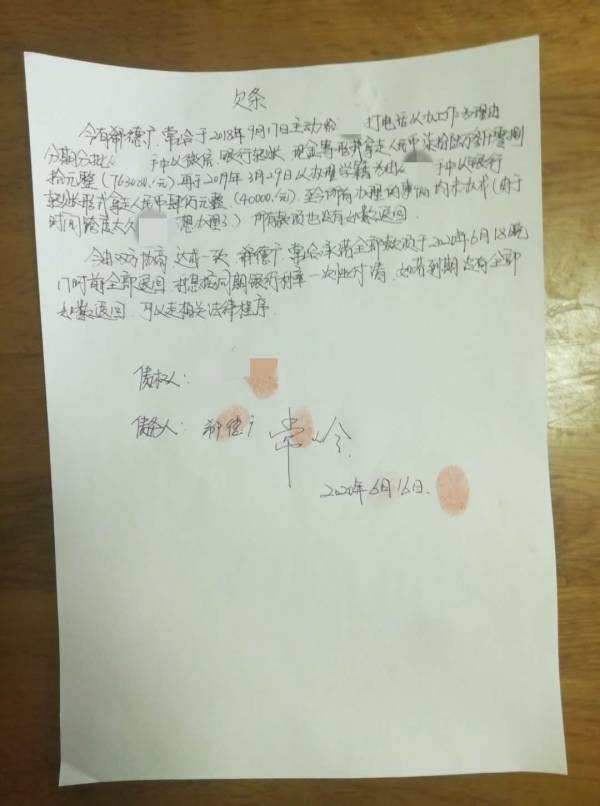 欠条
今有郝德广、常岭于2018年9月17日主动给 打电话以办工作为理由
分期分批从 手中以旅店、银行转账、现金等形式拿走人民币柒拾陆万叁仟零捌
拾元整(763080.元)再于2019年3月29日以办理学籍为由从 手中以银行
转账形式拿走人民币肆万元整(40000.元)至今所有办理的事宜均未办成(由于
时间跨度太久 不想办理了)所有款项也没有如数退回.
今由双方协商达成一致,郝德广、常岭承诺全部款项于2020年6月18日晚
17时前全部退回,利息按同期银行利率一次性付清,如若到期没有全部
如数退回,可以走相关法律程序.
债权人:
债务人:郝德广 常岭
2020年6月16日.